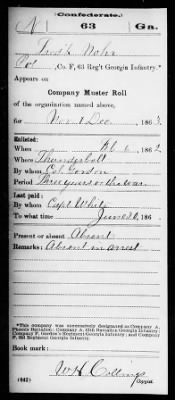 (Confederate.)
N 63 Ga.
Fred'k Nohr
Pvt, Co. F, 63 Reg't Georgia Infantry.*
Appears on
Company Muster Roll
of the organization named above,
for Nov & Dec, 1863.
Enlisted:
When 1862
Where Thunderbolt
By whom Col. Gordon
Period Three years or the war
Last paid:
By whom Capt White
To what time June 30, 186
Present or absent Absent
Remarks: Absent in arrest
*This company was successively designated as Company A,
Phoenix Battalion; Company A, 13th Battalion Georgia Infantry;
Company F, Gordon's Regiment Georgia Infantry; and Company
F, 63d Regiment Georgia Infantry.
Book mark:
(642) Copyist.